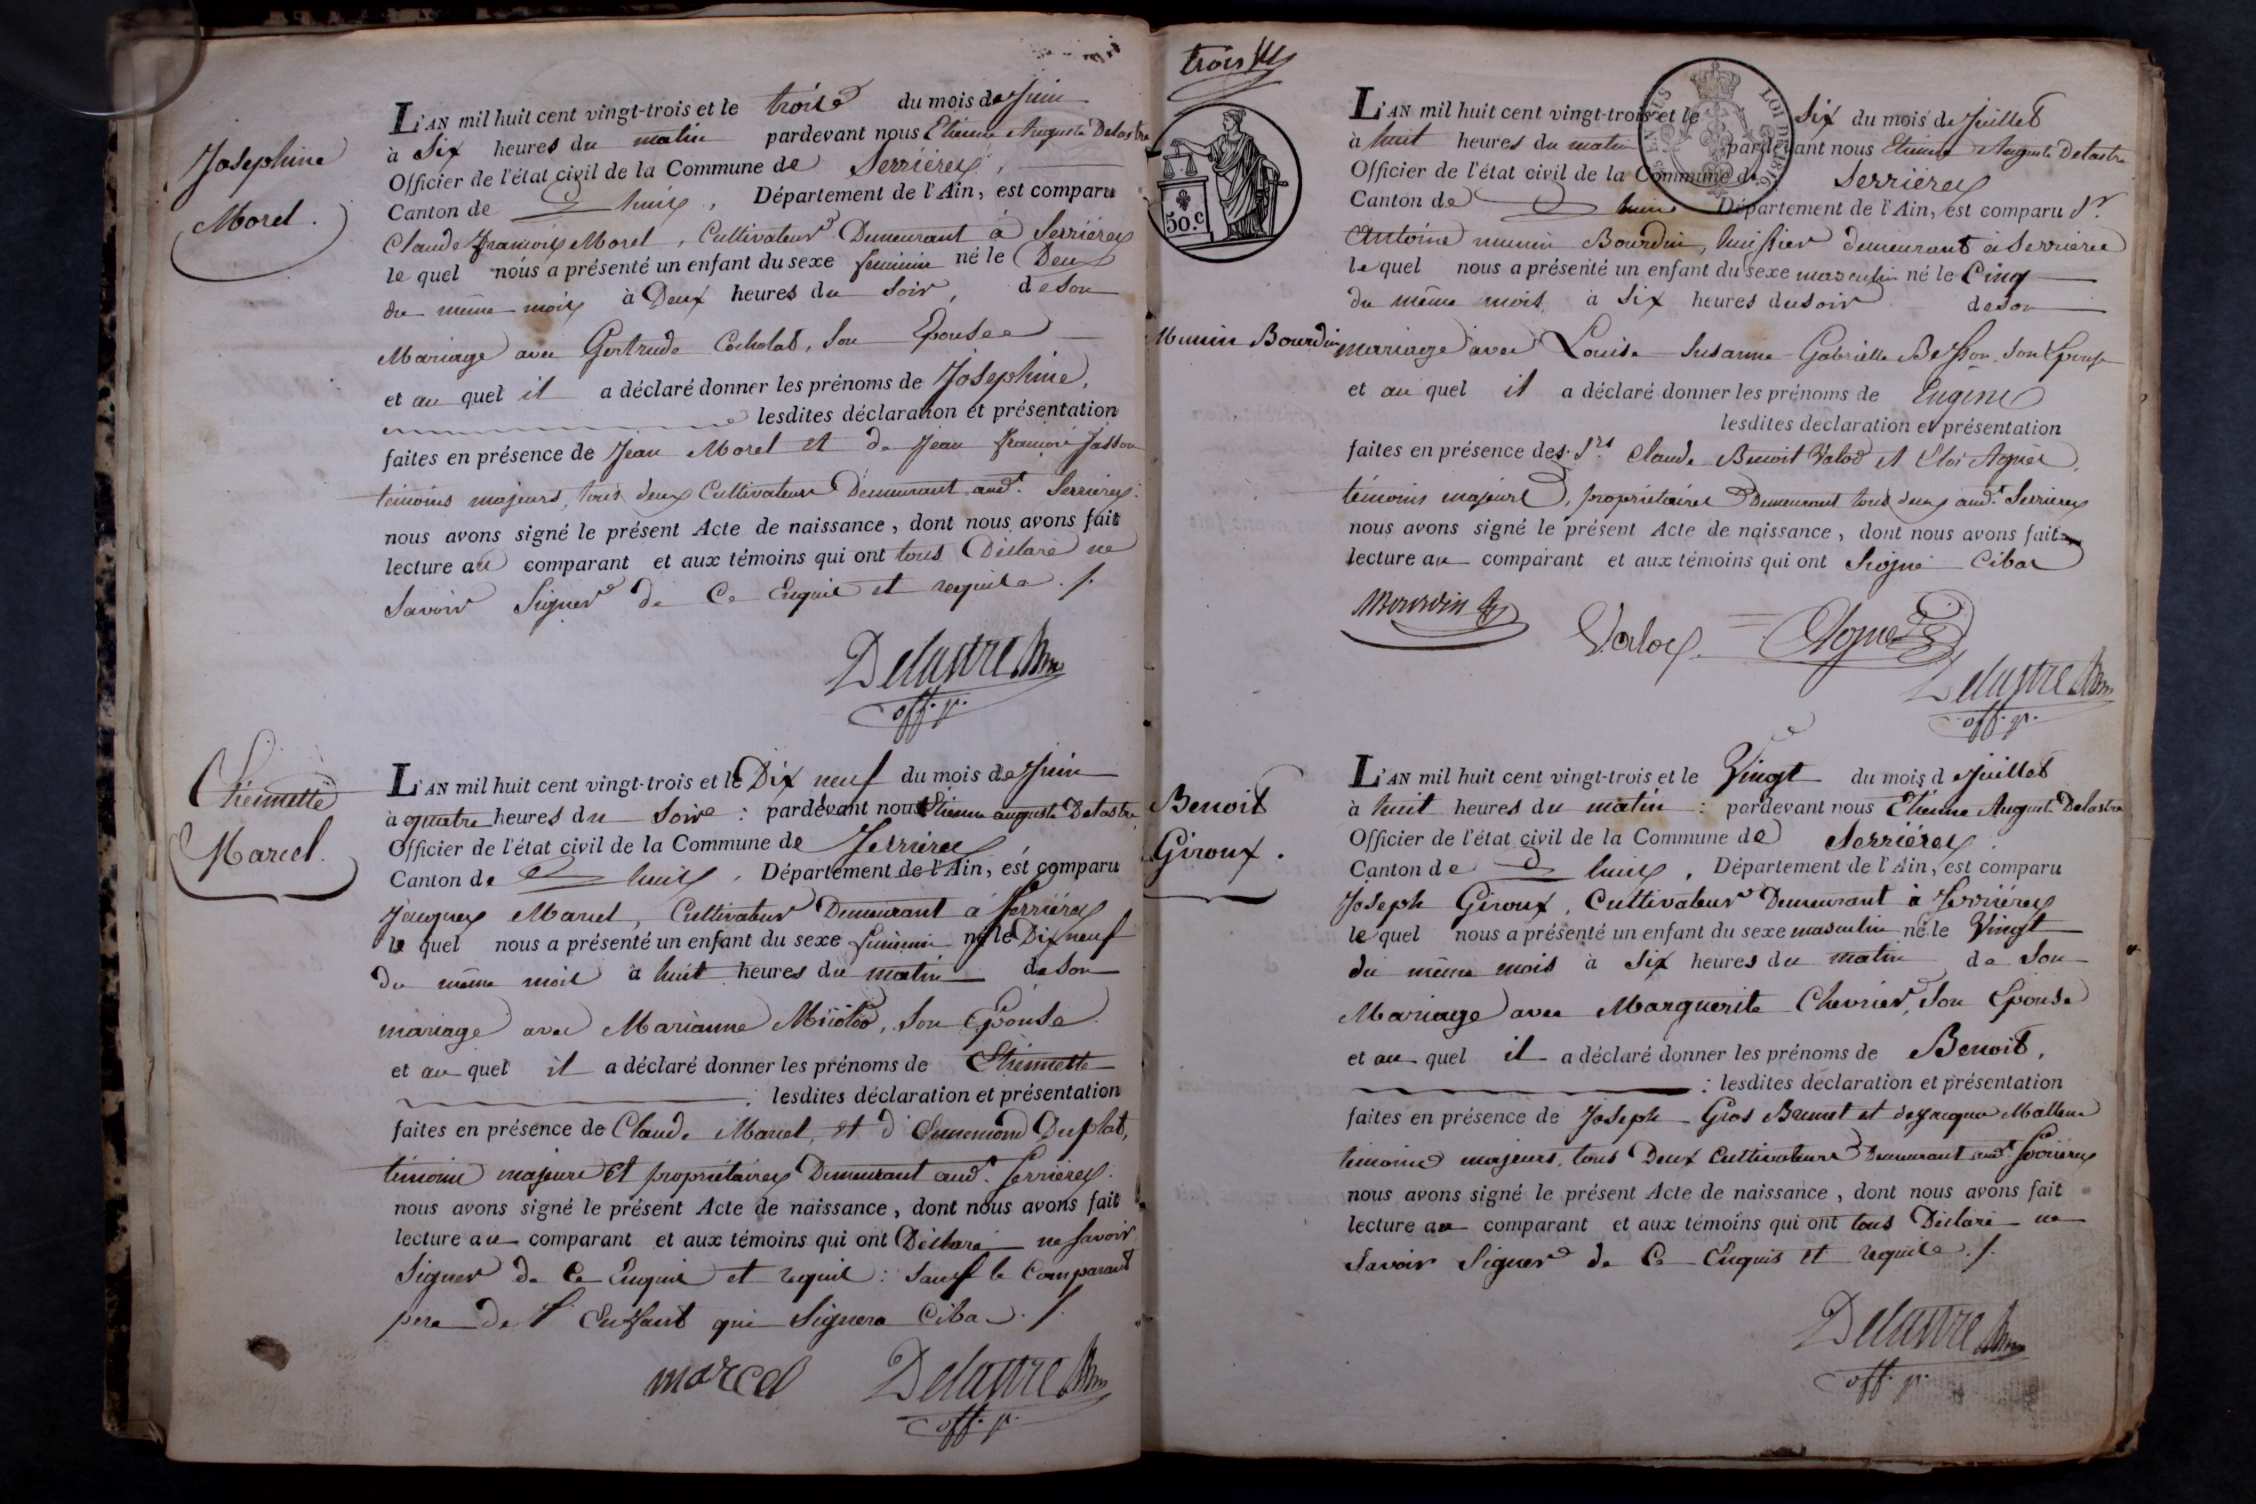 Josephine
Morel.
L'AN mil huit cent vingt-trois et le trois du mois de Juin
à Six heures du matin pardevant nous Etienne Auguste Delastre
Officier de l'état civil de la Commune de Serrières,
Canton de huis, Département de l'Ain, est comparu
Claude françois Morel, Cultivateur Demeurant à Serrières
le quel nous a présenté un enfant du sexe feminin né le Deux
du même mois à Deux heures du Soir, de son
Mariage avec Gertrude Cocholat, Son Epouse
et au quel il a déclaré donner les prénoms de Josephine,
lesdites déclaration et présentation
faites en présence de Jean Morel et de Jean françois
témoins majeurs, tous deux Cultivateurs Demeurant aud.t Serrières:
nous avons signé le présent Acte de naissance, dont nous avons fait
lecture au comparant et aux témoins qui ont tous Déclaré ne
Savoir Signer de Ce Enquis et requis ./.
Delastre
off. p.
Etiennette
Marcel.
L'AN mil huit cent vingt-trois et le Dix neuf du mois de Juin
à quatre heures du Soir : pardevant nous Etienne auguste Delastre
Officier de l'état civil de la Commune de Serrières
Canton de huis, Département de l'Ain, est comparu
Jacques Marcel, Cultivateur Demeurant à Serrières
le quel nous a présenté un enfant du sexe feminin né le Dix neuf
du même mois à huit heures du matin de Son
mariage avec Marianne, Son Epouse
et au quel il a déclaré donner les prénoms de Etiennette
: lesdites déclaration et présentation
faites en présence de Claude Marcel, et d' Ennemond Duplat,
témoins majeurs et propriétaires Demeurant aud.t Serrières.
nous avons signé le présent Acte de naissance, dont nous avons fait
lecture au comparant et aux témoins qui ont Déclaré ne savoir
Signer de Ce Enquis et requis : Sauf le Comparant
père de l'Enfant qui Signera Cibas ./.
marcel Delastre
off. p.
trois
50.c
LOI DE 1816
L'AN mil huit cent vingt-trois et le Six du mois de Juillet
à huit heures du matin pardevant nous Etienne Auguste Delastre
Officier de l'état civil de la Commune de Serrières
Canton de huis Département de l'Ain, est comparu S.r
Antoine munin Bourdin, huissier demeurant à Serrières
le quel nous a présenté un enfant du sexe masculin né le Cinq
du même mois, à Six heures du soir de son
Munin Bourdin
mariage avec Louise Susanne Gabrielle Besson, Son Epouse
et au quel il a déclaré donner les prénoms de Eugene
lesdites déclaration et présentation
faites en présence des S.rs Claude Benoit Valod et Eloi Agniel,
témoins majeurs, propriétaires Demeurant tous deux aud.t Serrières
nous avons signé le présent Acte de naissance, dont nous avons fait
lecture au comparant et aux témoins qui ont Signé Cibas
MBourdin
Valod
Delastre
off. p.
Benoit
Giroux.
L'AN mil huit cent vingt-trois et le Vingt du mois d Juillet
à huit heures du matin : pardevant nous Etienne August. Delastre
Officier de l'état civil de la Commune de Serrières
Canton de huis, Département de l'Ain, est comparu
Joseph Giroux, Cultivateur Demeurant à Serrières
le quel nous a présenté un enfant du sexe masculin né le Vingt
du même mois à Six heures du matin de Son
Mariage avec Marguerite Chevrier, Son Epouse
et au quel il a déclaré donner les prénoms de Benoit,
: lesdites déclaration et présentation
faites en présence de Joseph Gros Brunet et de Jacques
témoins majeurs, tous Deux Cultivateurs Demeurant aud.t Serrières
nous avons signé le présent Acte de naissance, dont nous avons fait
lecture au comparant et aux témoins qui ont tous Déclaré ne
Savoir Signer de Ce Enquis et requis ./.
Delastre
off. p.